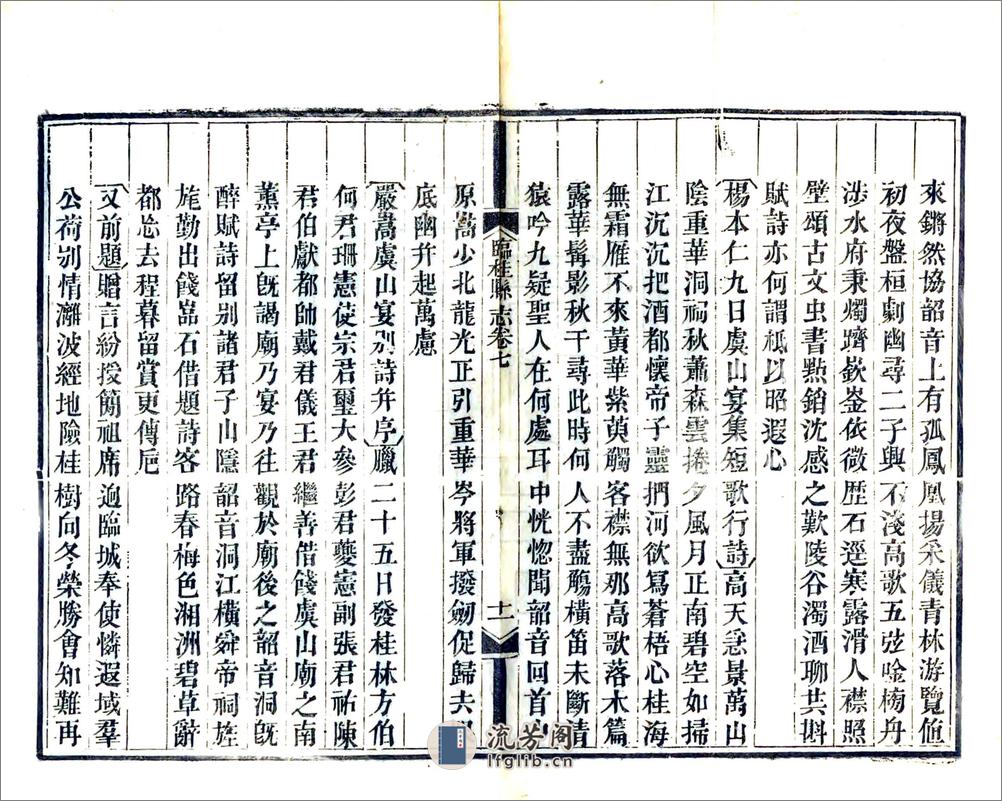 來鏘然協韶音上有孤鳳凰揚采儀青林游覽值
初夜盤桓劇幽尋二子興不淺高歌五弦唫檥舟
涉水府秉燭躋嶔崟依微歷石逕寒露滑人襟照
壁頌古文虫書㸃銷沈感之歎陵谷濁酒聊共斟
賦詩亦何謂祗以昭遐心
楊本仁九日虞山宴集短歌行詩高天悬景萬山
陰重華洞祠秋蕭森雲捲夕風月正南碧空如掃
江沉沉把酒都懷帝子靈捫河欲寫蒼梧心桂海
無霜雁不來黃華紫萸觸客襟無那高歌落木篇
露華鬂影秋千尋此時何人不盡觴橫笛未斷清
猿吟九疑聖人在何處耳中恍惚聞韶音回首
臨桂縣志卷七
十一
原蒿少北龍光正引重華岑將軍撥劒促歸去
底幽幷起萬慮
嚴嵩虞山宴别詩幷序臘二十五日發桂林方伯
何君珊憲使宗君璽大參彭君夔憲副張君祐陳
君伯獻都帥戴君儀王君繼善偕餞虞山廟之南
薰亭上旣謁廟乃宴乃往觀於廟後之韶音洞旣
醉賦詩留别諸君子山隱韶音洞江横舜帝祠旌
旄勤出餞嵓石借題詩客路春梅色湘洲碧草辭
都忘去程暮留賞更傳卮
又前題贈言紛授簡祖席逈臨城奉使憐遐域羣
公荷别情灕波經地險桂樹向冬榮勝會知難再
流芳阁
lfglib.cn